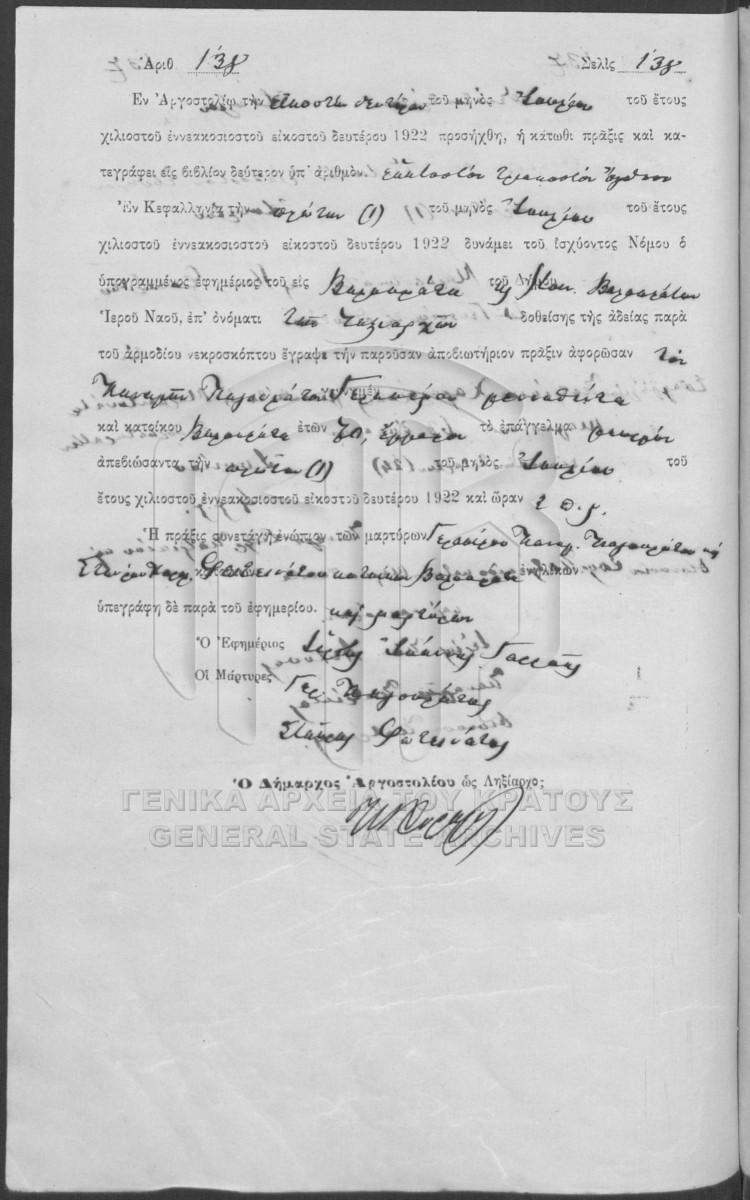 Ἀριθ. 138 Σελὶς 138
Ἐν Ἀργοστολίῳ τὴν εἰκοστὴν δευτέραν τοῦ μηνὸς Ἰουλίου τοῦ ἔτους
χιλιοστοῦ ἐννεακοσιοστοῦ εἰκοστοῦ δευτέρου 1922 προσήχθη, ἡ κάτωθι πρᾶξις καὶ κα-
τεγράφει εἰς βιβλίον δεύτερον ὑπ' ἀριθμὸν. ἑκατοστὸν τριακοστὸν ὄγδοον
Ἐν Κεφαλληνίᾳ τὴν πρώτην (1) τοῦ μηνὸς Ἰουλίου τοῦ ἔτους
χιλιοστοῦ ἐννεακοσιοστοῦ εἰκοστοῦ δευτέρου 1922 δυνάμει τοῦ ἰσχύοντος Νόμου ὁ
ὑπογραμμένος ἐφημέριος τοῦ εἰς Βαλσαμάτα τοῦ Δήμου Κοιν. Βαλσαμάτων
Ἱεροῦ Ναοῦ, ἐπ' ὀνόματι τῶν Ταξιαρχῶν δοθείσης τῆς ἀδείας παρὰ
τοῦ ἁρμοδίου νεκροσκόπτου ἔγραψε τὴν παροῦσαν ἀποβιωτήριον πρᾶξιν ἀφορῶσαν τὸν
γεννημέν
καὶ κατοίκου Βαλσαμάτα ἐτῶν 70, ἔγγαμον τὸ ἐπάγγελμα
ἀπεβιώσαντα τὴν πρώτην (1) τοῦ μηνὸς Ἰουλίου τοῦ
ἔτους χιλιοστοῦ ἐννεακοσιοστοῦ εἰκοστοῦ δευτέρου 1922 καὶ ὥραν 2
Ἡ πρᾶξις συνετάγη ἐνώπιον τῶν μαρτύρων Γερασίμου
Φωτεινάτου κατοίκων Βαλσαμάτα ἐνηλίκων
ὑπεγράφη δὲ παρὰ τοῦ ἐφημερίου. καὶ μαρτύρων
Ὁ Ἐφημέριος Ἰωάννης
Οἱ Μάρτυρες Γερ.
Σταῦρος Φωτεινάτος
Ὁ Δήμαρχος Ἀργοστολίου ὡς Ληξίαρχος
ΓΕΝΙΚΑ ΑΡΧΕΙΑ ΤΟΥ ΚΡΑΤΟΥΣ
GENERAL STATE ARCHIVES